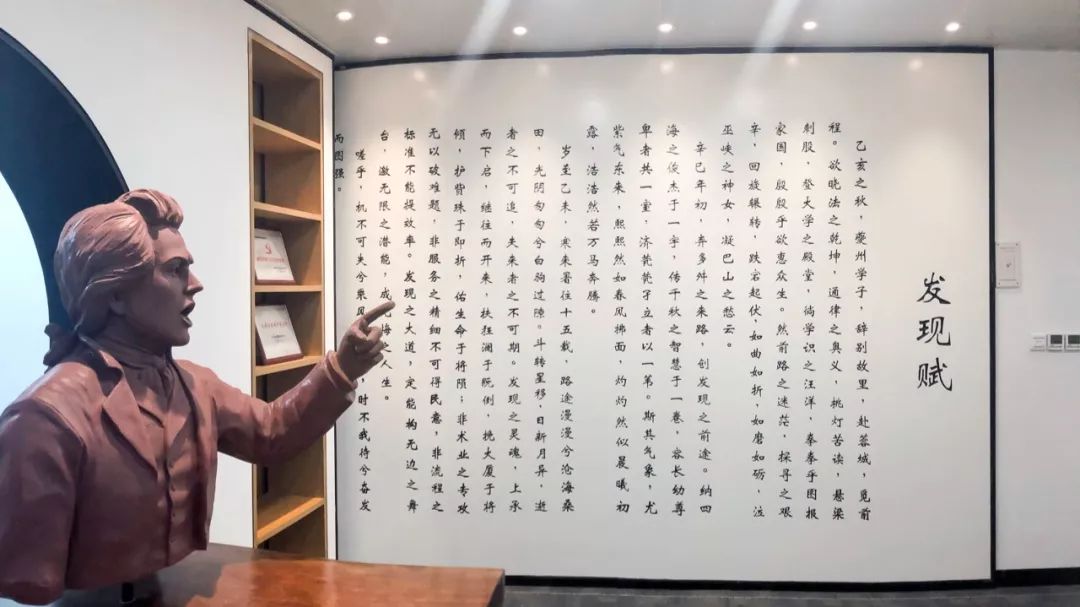 发现赋
乙亥之秋，夔州学子，辞别故里，赴蓉城，觅前
程。欲晓法之乾坤，通律之奥义，桃灯苦读，悬梁
刺股，登大学之殿堂，倘学识之汪洋，拳拳乎图报
家国，殷殷乎欲惠众生。然前路之迷茫，探寻之艰
辛，回旋辗转，跌宕起伏，如曲如折，如磨如砺，泣
巫峡之神女，凝巴山之愁云。
辛巳年初，弃多舛之来路，创发现之前途。纳四
海之俊杰于一宇，传千秋之智慧于一卷，容长幼尊
卑者共一室，济茕茕孑立者以一第。斯其气象，尤
紫气东来，熙熙然如春风拂面，灼灼然似晨曦初
露，浩浩然若万马奔腾。
岁至乙未，寒来暑往十五载，路途漫漫兮沧海桑
田，光阴匆匆兮白驹过隙。斗转星移，日新月异，逝
者之不可追，失来者之不可期。发现之灵魂，上承
而下启，继往而开来，扶狂澜于既倒，挽大厦于将
倾，护赀珠于即折，佑生命于将陨；非术业之专攻
无以破难题，非服务之精细不可得民意，非流程之
标准不能提效率。发现之大道，定能构无边之舞
台，激无限之潜能，成海之人生。
嗟乎，机不可失兮乘风，时不我待兮奋发
而图强。